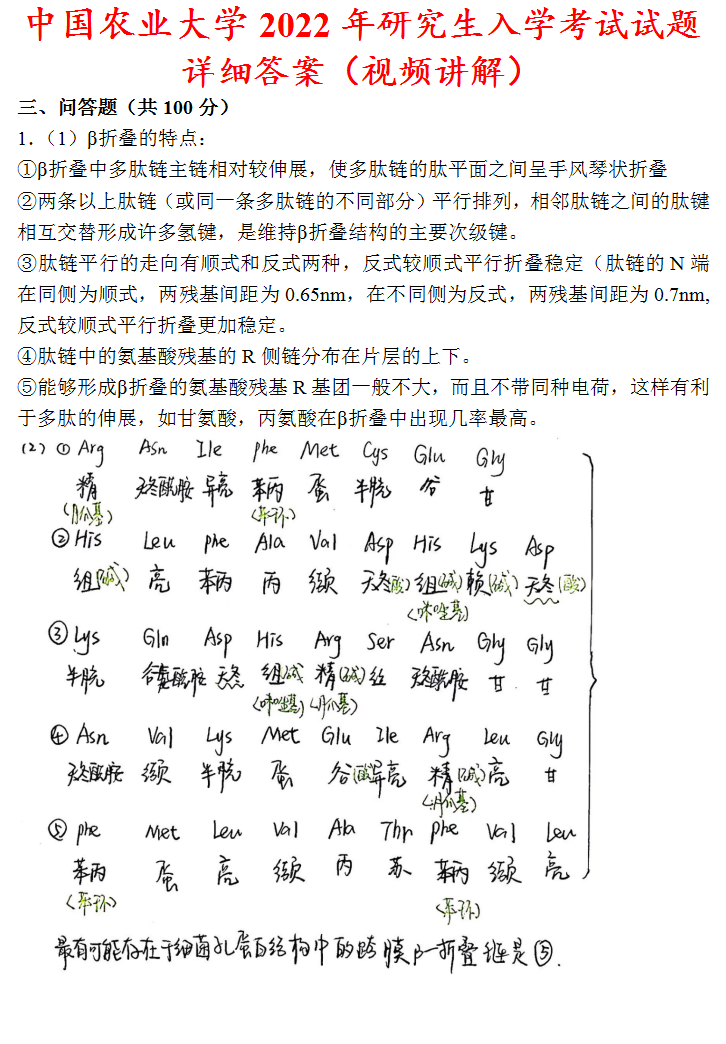 中国农业大学 2022 年研究生入学考试试题
详细答案（视频讲解）
三、问答题（共 100 分）
1.（1）β折叠的特点：
①β折叠中多肽链主链相对较伸展，使多肽链的肽平面之间呈手风琴状折叠
②两条以上肽链（或同一条多肽链的不同部分）平行排列，相邻肽链之间的肽键
相互交替形成许多氢键，是维持β折叠结构的主要次级键。
③肽链平行的走向有顺式和反式两种，反式较顺式平行折叠稳定（肽链的 N 端
在同侧为顺式，两残基间距为 0.65nm，在不同侧为反式，两残基间距为 0.7nm,
反式较顺式平行折叠更加稳定。
④肽链中的氨基酸残基的 R 侧链分布在片层的上下。
⑤能够形成β折叠的氨基酸残基 R 基团一般不大，而且不带同种电荷，这样有利
于多肽的伸展，如甘氨酸，丙氨酸在β折叠中出现几率最高。
(2) ① Arg Asn Ile Phe Met Cys Glu Gly
精 天冬酰胺 异亮 苯丙 蛋 半胱 谷 甘
(胍基) (苯环)
② His Leu Phe Ala Val Asp His Lys Asp
组(碱) 亮 苯丙 丙 缬 天冬(酸) 组(碱) 赖(碱) 天冬(酸)
(咪唑基)
③ Lys Gln Asp His Arg Ser Asn Gly Gly
半胱 谷氨酰胺 天冬 组(碱) 精(碱) 丝 天冬酰胺 甘 甘
(咪唑基) (胍基)
④ Asn Val Lys Met Glu Ile Arg Leu Gly
天冬酰胺 缬 半胱 蛋 谷(酸) 异亮 精(碱) 亮 甘
(胍基)
⑤ Phe Met Leu Val Ala Thr Phe Val Leu
苯丙 蛋 亮 缬 丙 苏 苯丙 缬 亮
(苯环) (苯环)
最有可能存在于细菌孔蛋白结构中的跨膜β-折叠继是⑤.